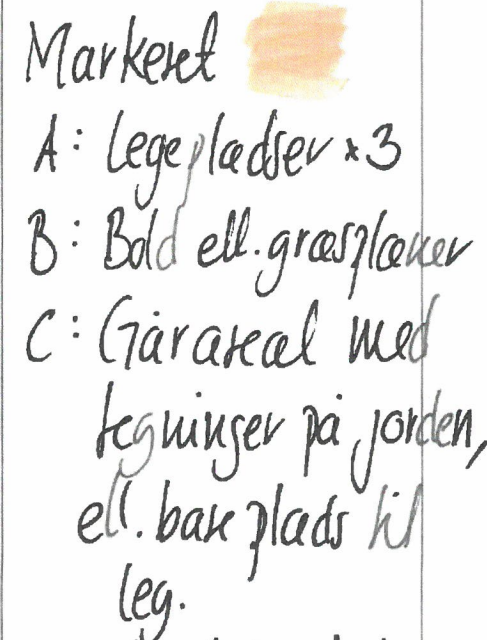 Markeret
A: Legepladser x 3
B: Bold ell. græsplæner
C: Gårareal med
tegninger på jorden,
ell. bare plads til
leg.